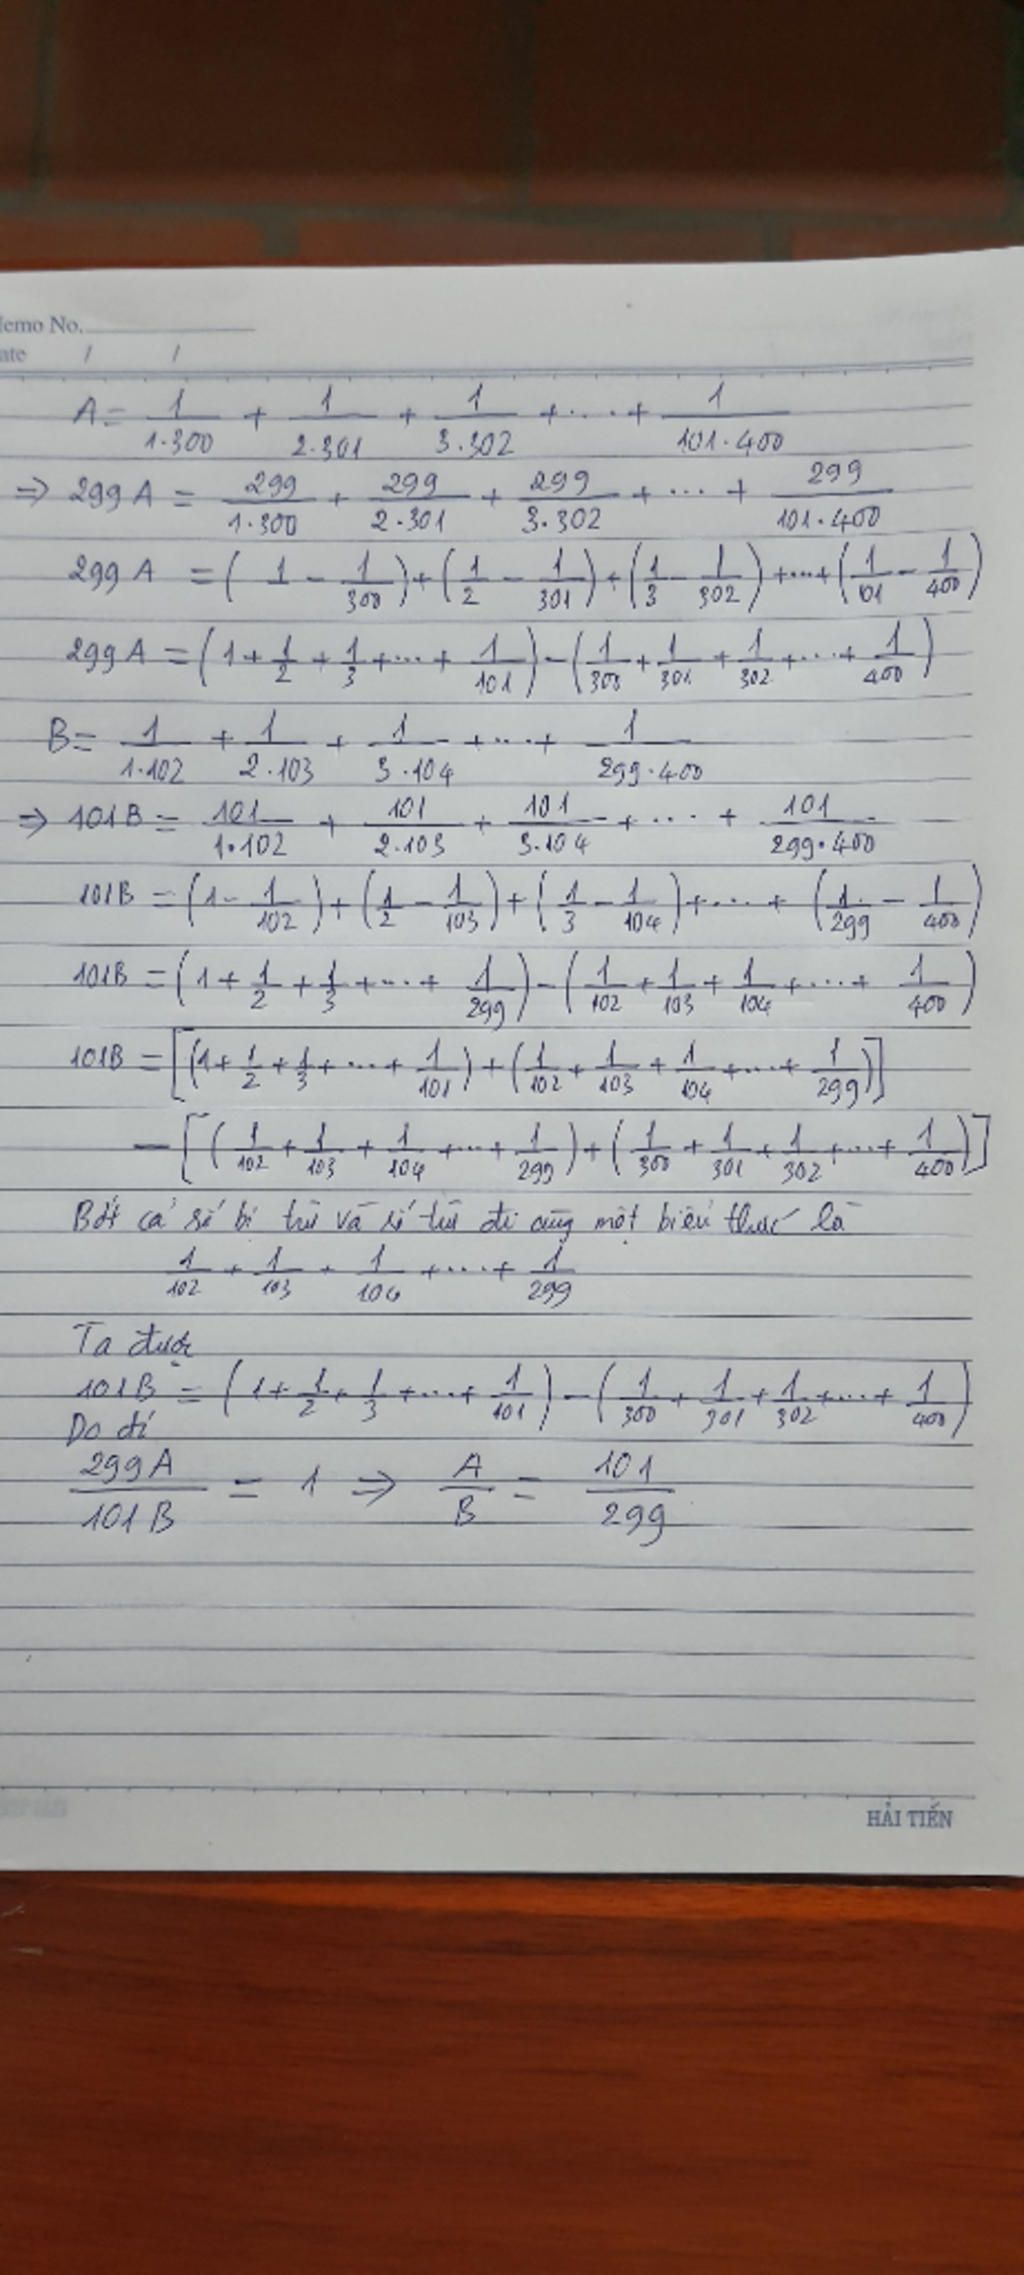 emo No.
ate / /
A = 1/(1·300) + 1/(2·301) + 1/(3·302) + .... + 1/(101·400)
=> 299 A = 299/(1·300) + 299/(2·301) + 299/(3·302) + ... + 299/(101·400)
299 A = (1 - 1/300) + (1/2 - 1/301) + (1/3 - 1/302) + ... + (1/101 - 1/400)
299 A = (1 + 1/2 + 1/3 + ... + 1/101) - (1/300 + 1/301 + 1/302 + ... + 1/400)
B = 1/(1·102) + 1/(2·103) + 1/(3·104) + ... + 1/(299·400)
=> 101B = 101/(1·102) + 101/(2·103) + 101/(3·104) + .... + 101/(299·400)
101B = (1 - 1/102) + (1/2 - 1/103) + (1/3 - 1/104) + .... + (1/299 - 1/400)
101B = (1 + 1/2 + 1/3 + ... + 1/299) - (1/102 + 1/103 + 1/104 + .... + 1/400)
101B = [(1 + 1/2 + 1/3 + ... + 1/101) + (1/102 + 1/103 + 1/104 + ... + 1/299)]
- [(1/102 + 1/103 + 1/104 + ... + 1/299) + (1/300 + 1/301 + 1/302 + ... + 1/400)]
Bớt cả số bị trừ và số trừ đi cùng một biểu thức là
1/102 + 1/103 + 1/104 + .... + 1/299
Ta được
101B = (1 + 1/2 + 1/3 + ... + 1/101) - (1/300 + 1/301 + 1/302 + ... + 1/400)
Do đó
299A/101B = 1 => A/B = 101/299
HẢI TIẾN